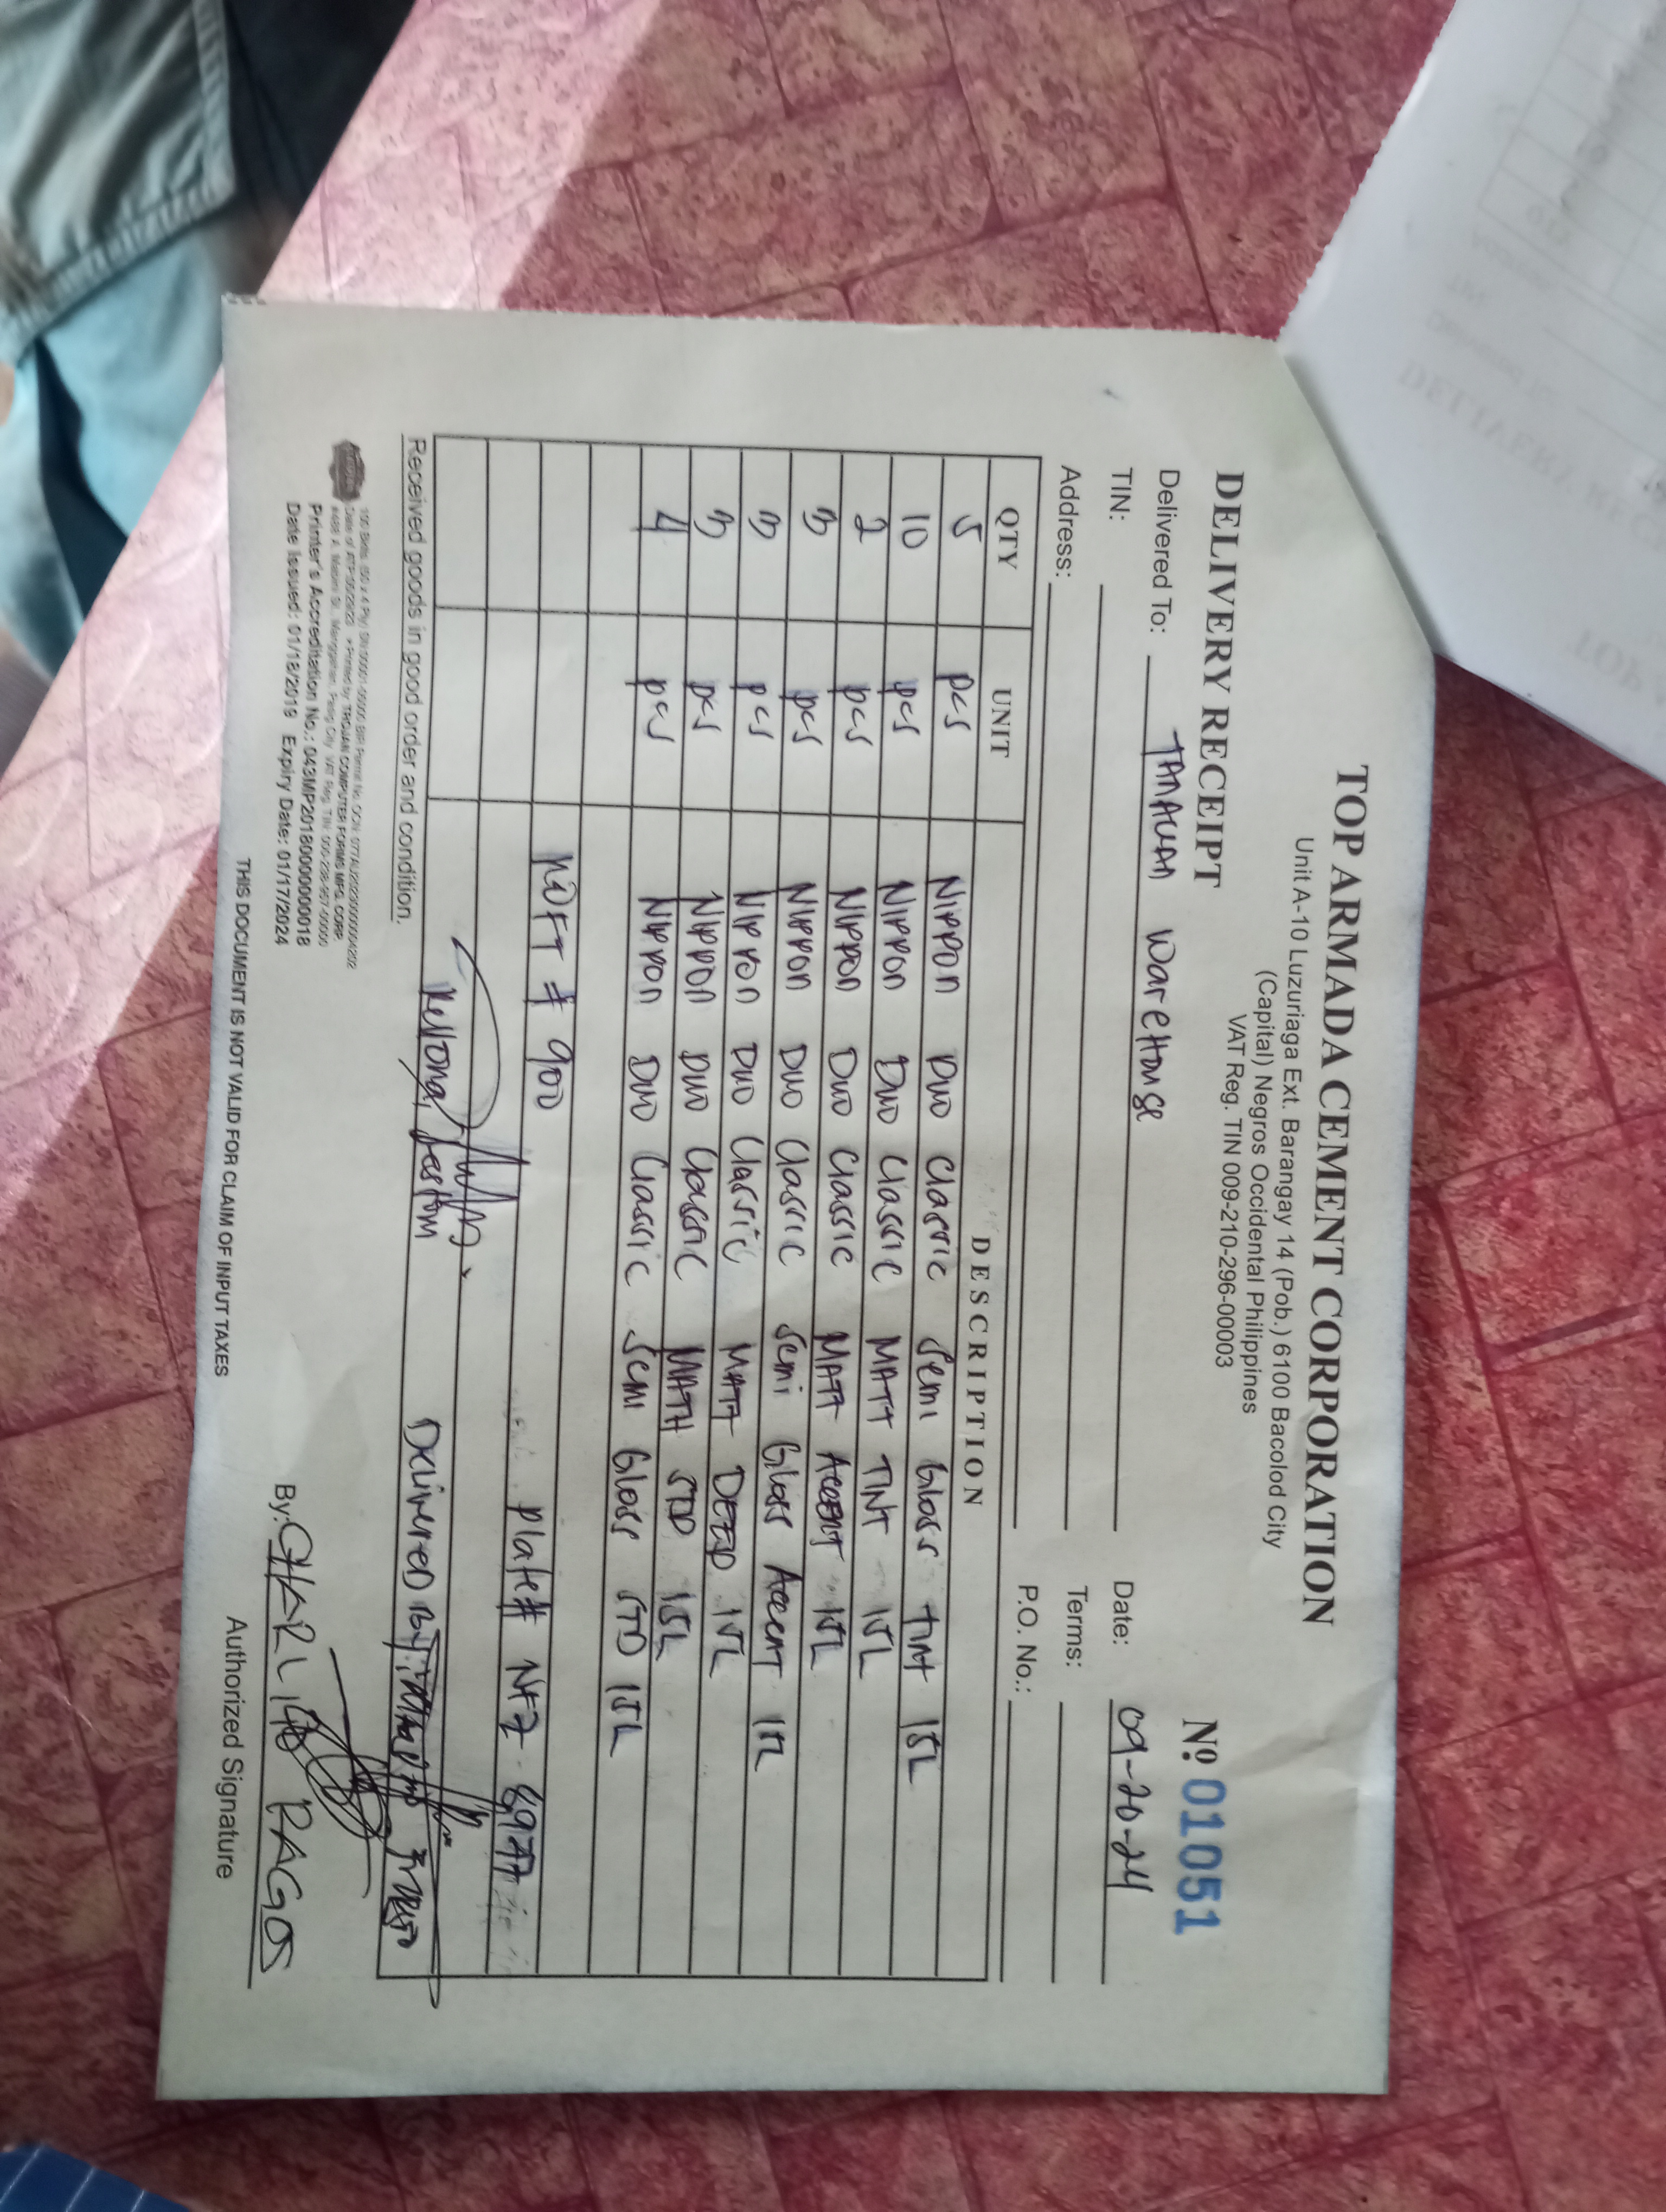 TOP ARMADA CEMENT CORPORATION
Unit A-10 Luzuriaga Ext. Barangay 14 (Pob.) 6100 Bacolod City
(Capital) Negros Occidental Philippines
VAT Reg. TIN 009-210-296-00003
DELIVERY RECEIPT
Nº 01051
Delivered To: TAMAUAN WareHouse Date: 09-20-24
TIN: Terms:
Address: P.O. No.:
QTY UNIT DESCRIPTION
5 pcs NIPPON DUO Classic Semi Gloss tint 15L
10 pcs NIPPON DUO Classic MATT TINT 15L
2 pcs NIPPON DUO Classic MATT Accent 15L
3 pcs NIPPON DUO Classic Semi Gloss Accent 15L
3 pcs NIPPON DUO Classic MATT DEEP 15L
3 pcs NIPPON DUO Classic MATT STD 15L
4 pcs NIPPON DUO Classic Semi Gloss STD 15L
# 900 plate# NFZ-8977
Delivered By:
Received goods in good order and condition.
Printer's Accreditation No.: 043MP20180000000018
Date Issued: 01/18/2019 Expiry Date: 01/17/2024
By: CHARLITO RAGOS
Authorized Signature
THIS DOCUMENT IS NOT VALID FOR CLAIM OF INPUT TAXES
DELIVERY
TOP